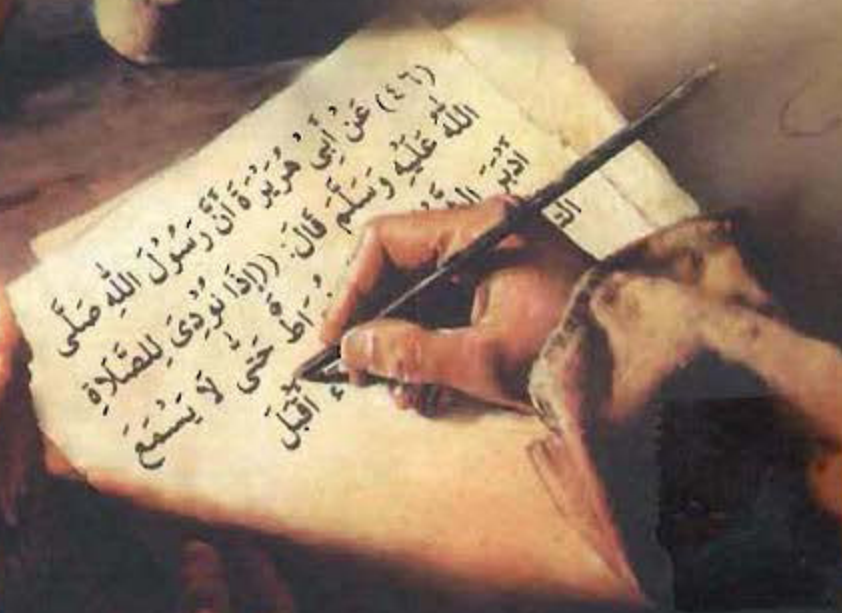 (٤٦) عَنْ أَبِي هُرَيْرَةَ أَنَّ رَسُوْلَ اللهِ صَلَّى
اللهُ عَلَيْهِ وَسَلَّمَ قَالَ: ((إِذَا نُوْدِىَ لِلصَّلَاةِ
أَدْبَرَ حَتَّى لَا يَسْمَعَ
أَقْبَلَ